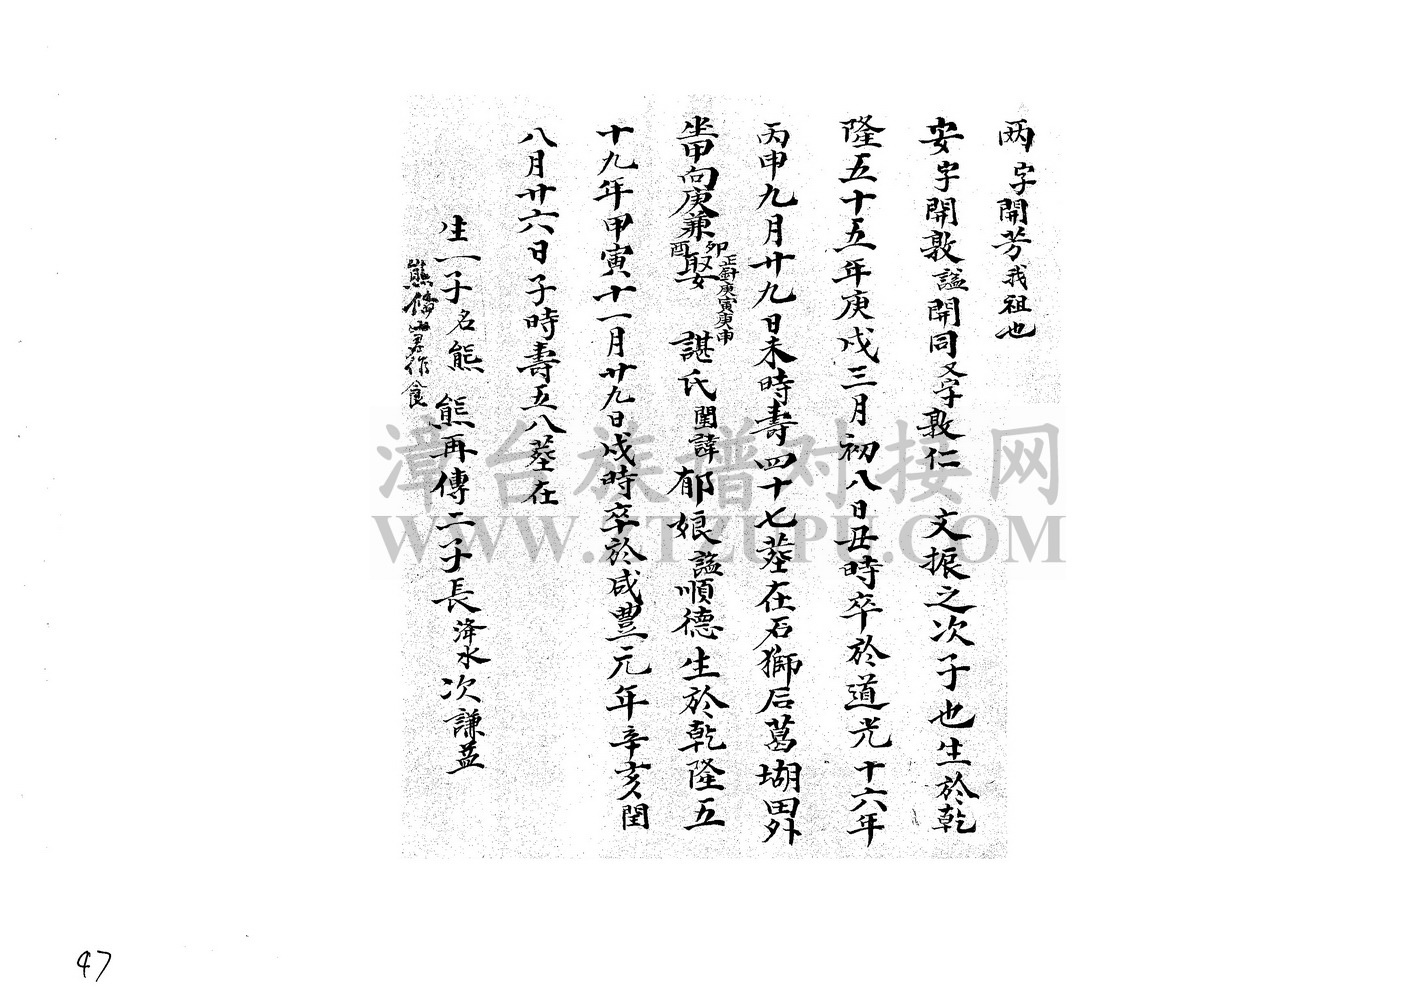 两字開芳我祖也
安字開敦謚開同又字敦仁 文振之次子也生於乾
隆五十五年庚戌三月初八日丑時卒於道光十六年
丙申九月廿九日未時壽四十七葬在石獅后葛坳田外
坐甲向庚兼卯酉正針庚寅庚申娶 諶氏閨諱郁娘謚順德生於乾隆五
十九年甲寅十一月廿九日戌時卒於咸豐元年辛亥閏
八月廿六日子時壽五八葬在
生一子名熊 熊再傳二子長湰水次謙益
熊
漳台族谱对接网
WWW.ZTZUPU.COM
47